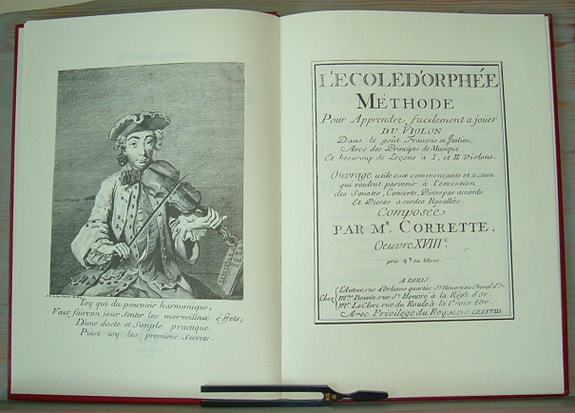 Toy qui du pouvoir harmonique,
Veux faire un jour sentir les merveilleux effets;
D'une docte et Simple pratique
Puise icy les premiers secrets.
L'ECOLE D'ORPHÉE
MÉTHODE
Pour Apprendre facilement a joüer
DU VIOLON
Dans le goût François et Italien;
Avec des Principes de Musique
Et beaucoup de Leçons a I, et II Violons.
Ouvrage utile aux commençants et a ceux
qui veulent parvenir à l'execution
des Sonates, Concerto, Pieces par accords
Et Pieces a cordes Ravallées.
Composée
PAR Mr. CORRETTE.
Oeuvre XVIIIe.
prix en blanc.
A PARIS.
Chez L'Auteur, rue d'Orleans quartier St. Honoré au Cheval d'Or.
Me. Boivin, rue St. Honoré à la Régle d'Or.
Mr. Le Clerc, rue du Roule à la Croix d'Or.
Avec Privilege du Roy